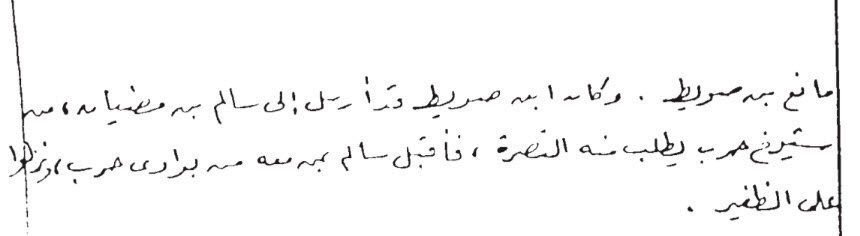 مانع بن صويط . وكان ابن صويط قد أرسل إلى سالم بن مضيان ، من
شيوخ حرب يطلب منه النصرة ، فأقبل سالم بمن معه من بوادى حرب ، ونزلوا
على الظفير .